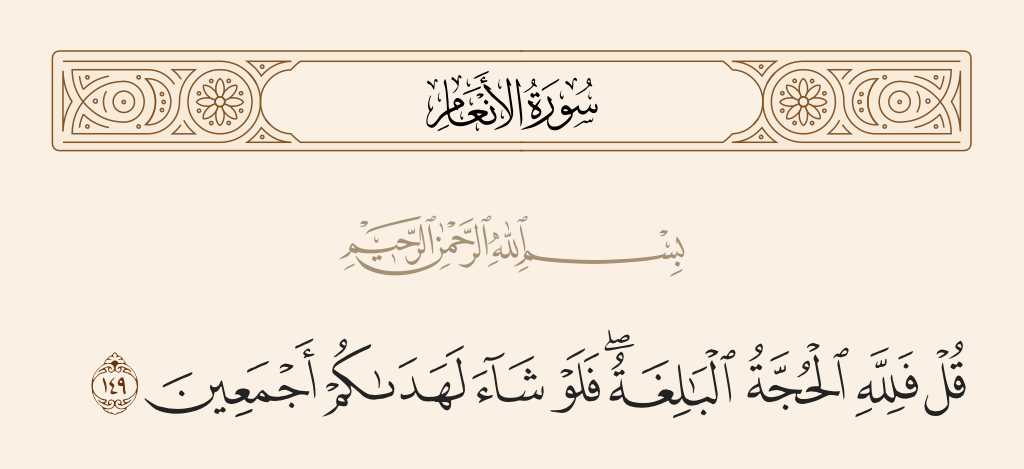 سُورَةُ الأَنْعَامِ
بِسْمِ ٱللَّهِ ٱلرَّحْمَٰنِ ٱلرَّحِيمِ
قُلْ فَلِلَّهِ ٱلْحُجَّةُ ٱلْبَٰلِغَةُ ۖ فَلَوْ شَآءَ لَهَدَىٰكُمْ أَجْمَعِينَ ١٤٩